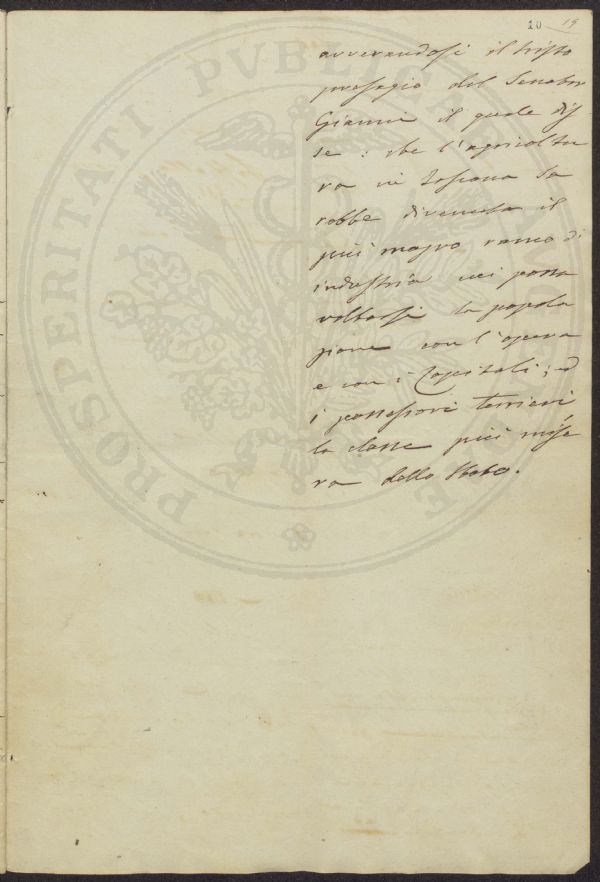 10 19
avverandosi il tristo
presagio del Senator
Gianni il quale dis
se: che l'agricoltu
ra in Toscana sa
rebbe divenuta il
più magro ramo di
industria cui possa
voltarsi la popola
zione con l'opera
e con i Capitali; ed
i possessori terrieri
la classe più mise
ra dello Stato.
PROSPERITATI PVBLICAE